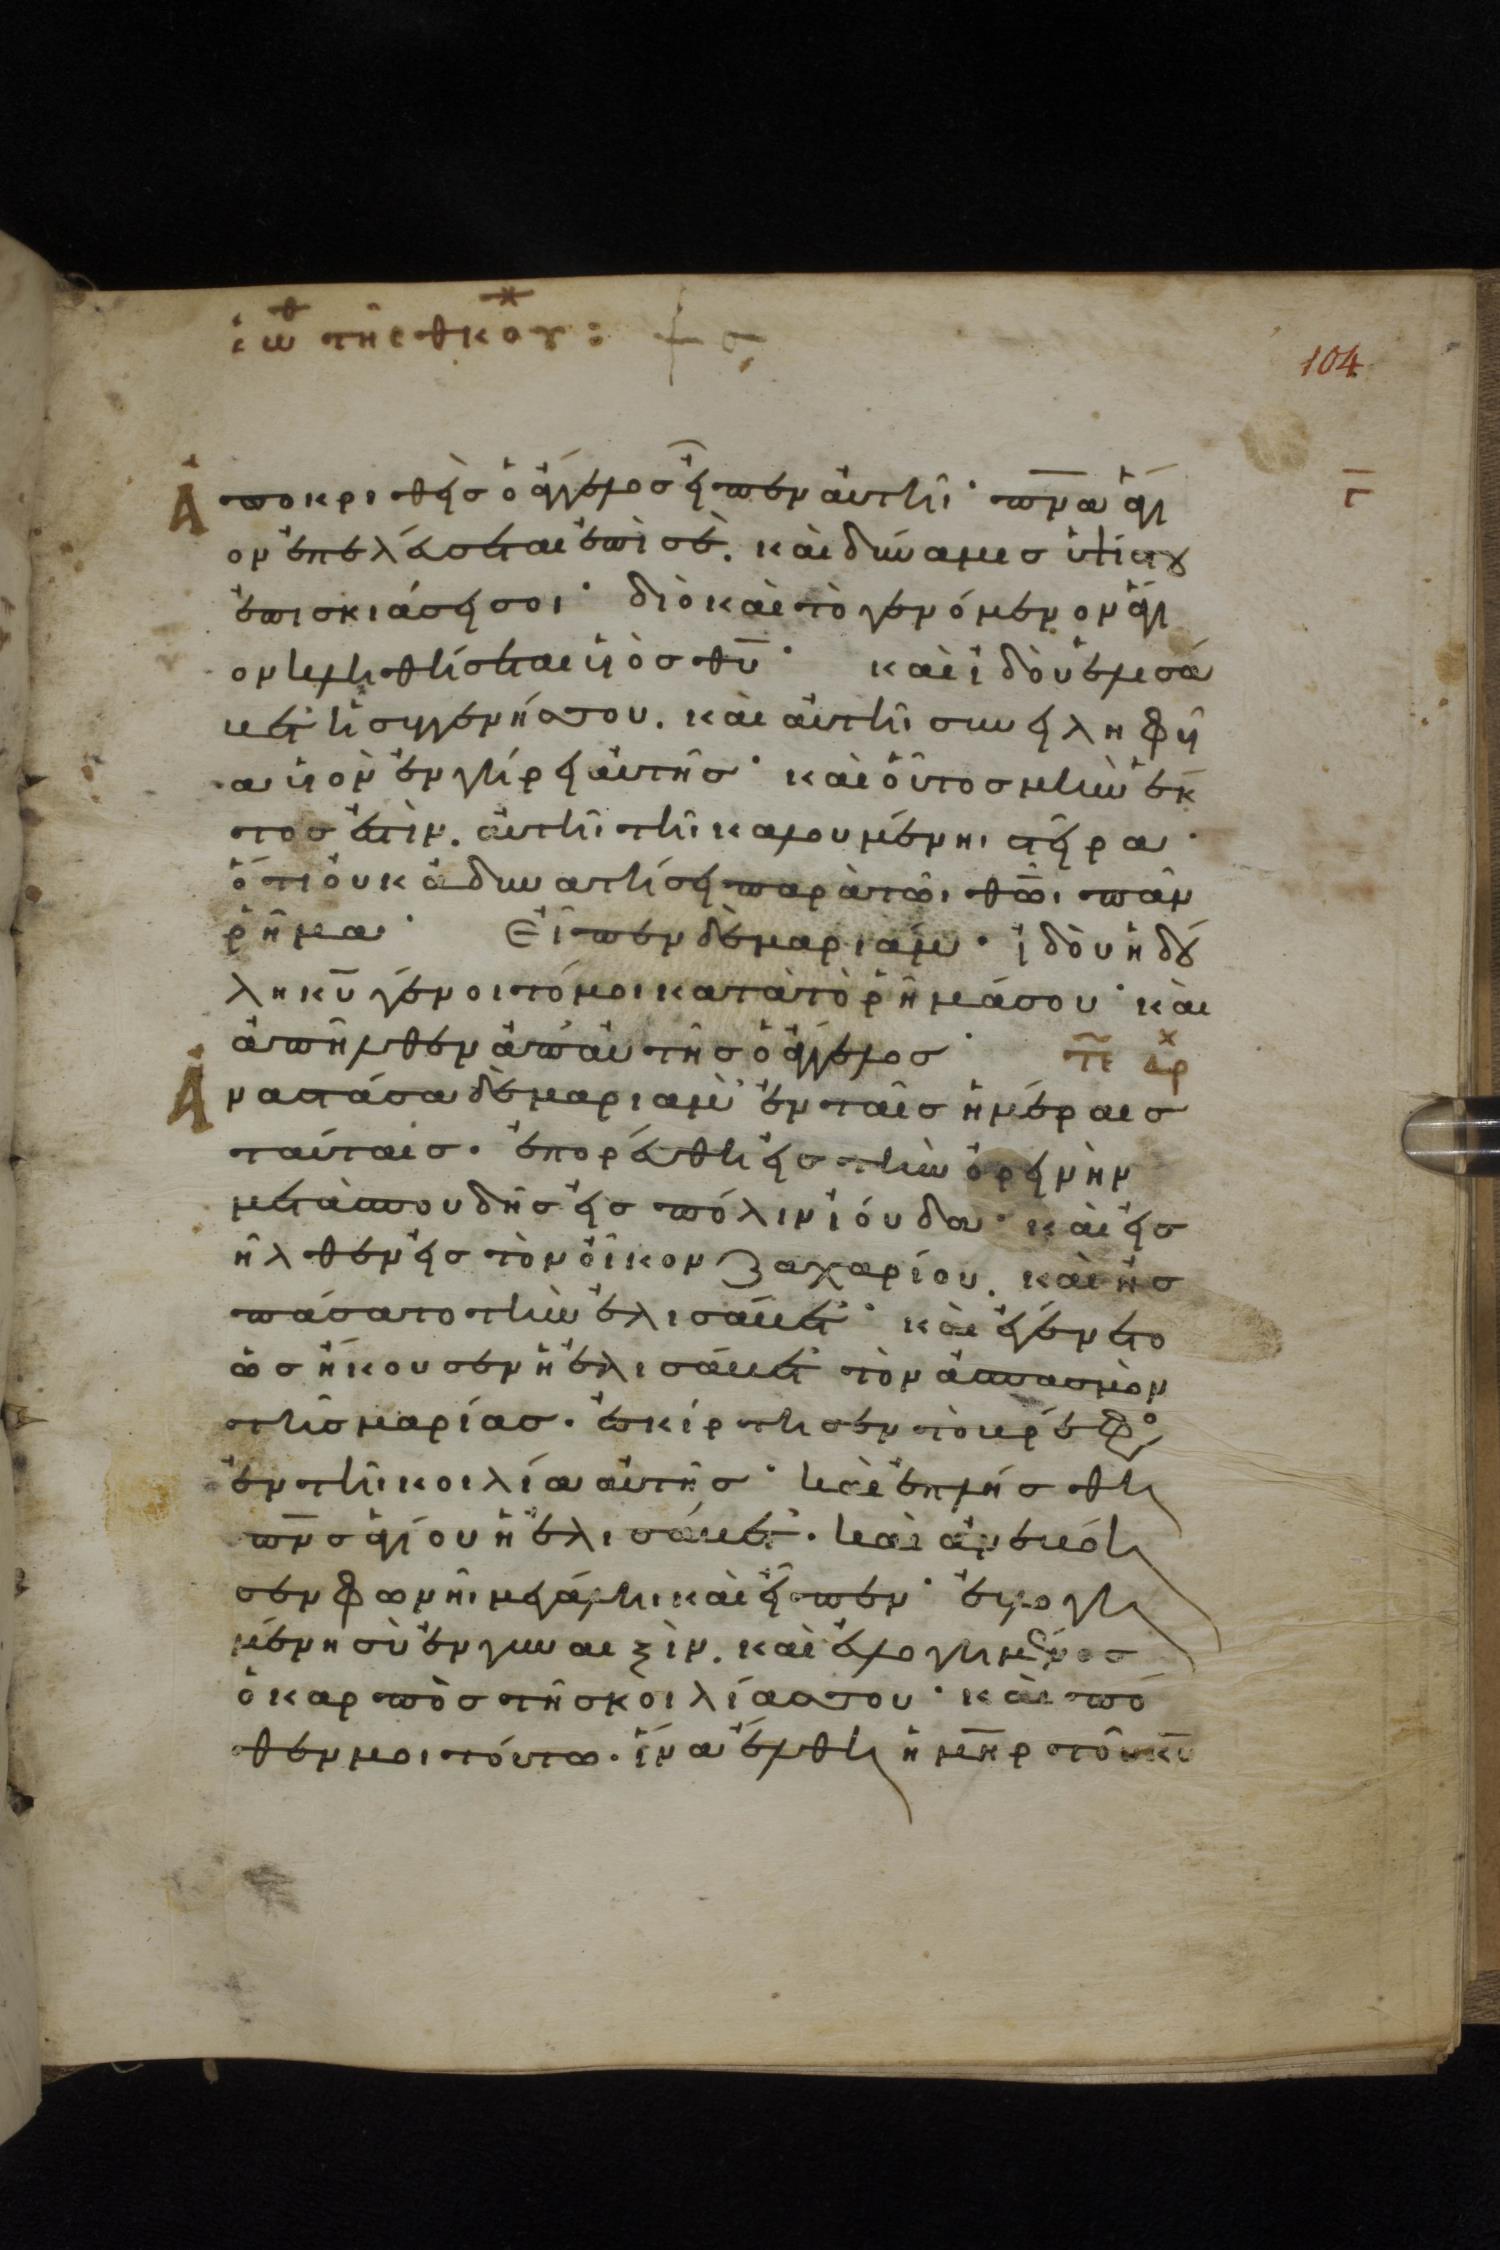 104
Ἀποκριθεὶς ὁ ἄγγελος εἶπεν αὐτῆ· πνᾶ ἅγι
ον ἐπελεύσεται ἐπὶ σὲ. καὶ δύναμις ὑψίστου
ἐπισκιάσει σοι· διὸ καὶ τὸ γενόμενον ἅγι
ον κληθήσεται υἱὸς θυ· καὶ ἰδοὺ ἐλισά
βετ ἡ συγγενής σου. καὶ αὐτὴ συνειληφυῖ
α υἱὸν ἐν γήρει αὐτῆς· καὶ οὗτος μὴν ἕκ
τος ἐστὶν. αὐτῆ τῆ καλουμένηι στείρα·
ὅτι οὐκ ἀδυνατήσει παρὰ τῶι θῶι πᾶν
ῥῆμα· Εἶπεν δὲ μαριάμ· ἰδοὺ ἡ δού
λη κυ γένοιτό μοι κατὰ τὸ ῥῆμά σου· καὶ
ἀπῆλθεν ἀπ' αὐτῆς ὁ ἄγγελος· τε αρχ
Ἀναστᾶσα δὲ μαριὰμ ἐν ταῖς ἡμέραις
ταύταις. ἐπορεύθη εἰς τὴν ὀρεινὴν
μετὰ σπουδῆς εἰς πόλιν ἰούδα· καὶ εἰσ
ῆλθεν εἰς τὸν οἶκον ζαχαρίου. καὶ ἠσ
πάσατο τὴν ἐλισάβετ· καὶ ἐγένετο
ὡς ἤκουσεν ἡ ἐλισάβετ τὸν ἀσπασμὸν
τῆς μαρίας. ἐσκίρτησεν τὸ βρέφος
ἐν τῆ κοιλία αὐτῆς· καὶ ἐπλήσθη
πνς ἁγίου ἡ ἐλισάβετ. καὶ ἀνεβόη
σεν φωνῆι μεγάλη καὶ εἶπεν· εὐλογη
μένη σὺ ἐν γυναιξὶν. καὶ εὐλογημένος
ὁ καρπὸς τῆς κοιλίας σου· καὶ πό
θεν μοι τούτο. ἵνα ἔλθη ἡ μηρ τοῦ κυ